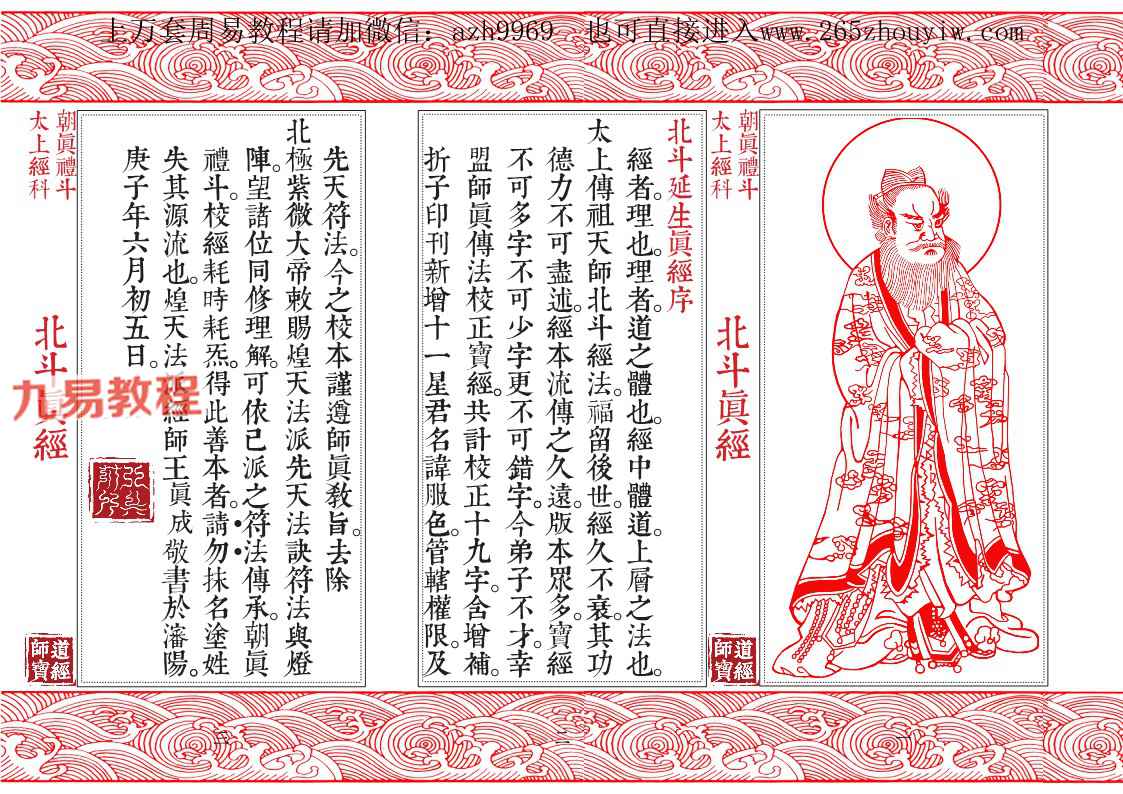 上万套周易教程请加微信：azh9969 也可直接进入www.265zhouyiw.com
朝眞禮斗
太上經科
北斗眞經
道經
師寶
北斗延生眞經序
經者。理也。理者。道之體也。經中體道。上層之法也。
太上傳祖天師北斗經法。福留後世。經久不衰。其功
德力不可盡述。經本流傳之久遠。版本眾多。寶經
不可多字不可少字更不可錯字。今弟子不才。幸
盟師眞傳法校正寶經。共計校正十九字。含增補。
折子印刊新增十一星君名諱服色。管轄權限。及
朝眞禮斗
太上經科
北斗眞經
道經
師寶
先天符法。今之校本謹遵師眞教旨。去除
北極紫微大帝敕賜煌天法派先天法訣符法與燈
陣。望諸位同修理解。可依已派之符法傳承。朝眞
禮斗。校經耗時耗炁。得此善本者。請勿抹名塗姓
失其源流也。煌天法 經師王眞成敬書於瀋陽。
庚子年六月初五日。
九易教程